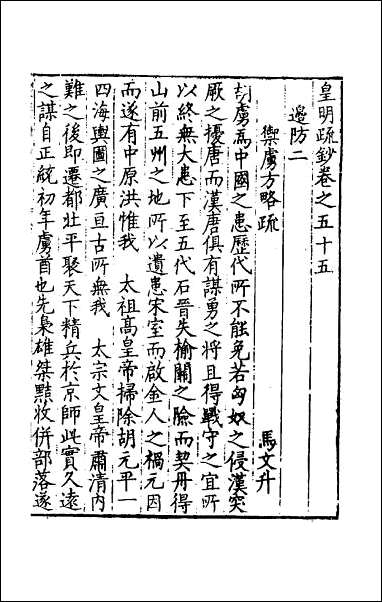 皇明疏鈔卷之五十五
邊防二
禦虜方略疏
馬文升
胡虜爲中國之患歷代所不能免若匈奴之侵漢突
厥之擾唐而漢唐俱有謀勇之將且得戰守之宜所
以終無大患下至五代石晉失榆關之險而契丹得
山前五州之地所以遺患宋室而啟金人之禍元因
而遂有中原洪惟我 太祖高皇帝掃除胡元平一
四海輿圖之廣亘古所無我 太宗文皇帝肅清內
難之後即遷都壯平聚天下精兵於京師此實久遠
之謀自正統初年虜酋也先梟雄桀黠收併部落遂